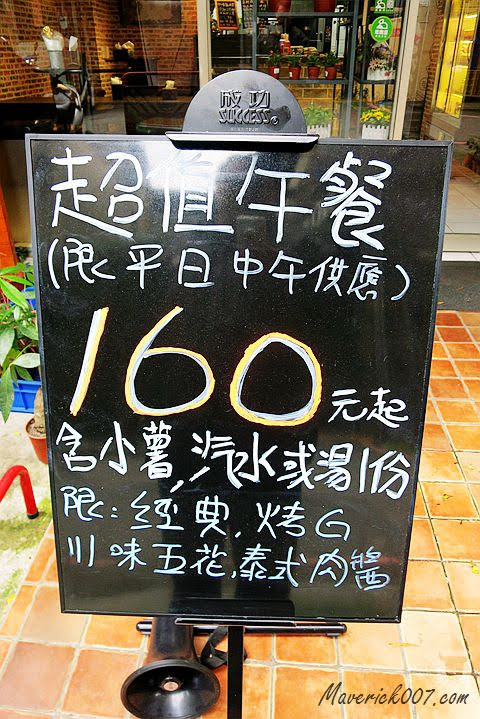 成功
SUCCESS®
超值午餐
(限平日中午供應)
160元起
含小薯,汽水或湯1份
限:經典,烤G
川味五花,泰式肉醬
Maverick007.com